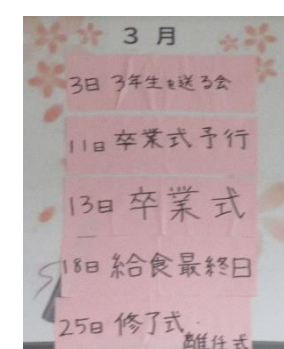 3月
3日 3年生を送る会
11日 卒業式予行
13日 卒業式
18日 給食最終日
25日 修了式
離任式